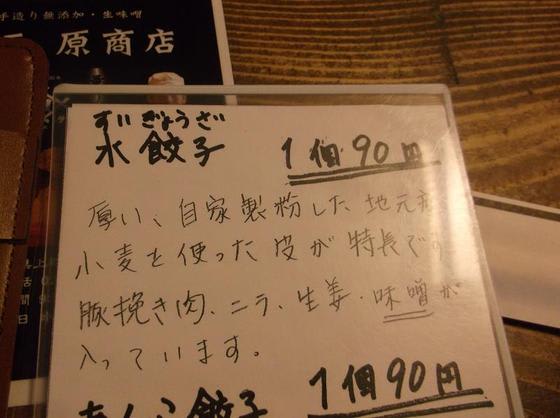 手造り無添加・生味噌
原商店
すい ぎょうざ
水餃子 1個90円
厚い、自家製粉した地元産
小麦を使った皮が特長です
豚挽き肉、ニラ、生姜・味噌が
入っています。
あんこ餃子 1個90円